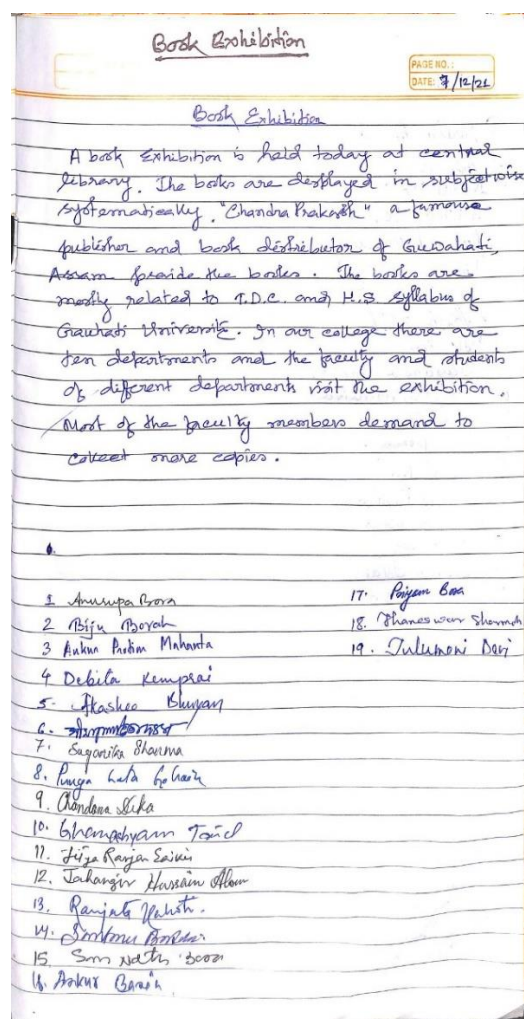 Book Exhibition
PAGE NO.:
DATE: 7/12/21
Book Exhibition
A book Exhibition is held today at central
library. The books are desplayed in subjectwise
systematically. "Chandra Prakash" a famouse
publisher and book distributor of Guwahati,
Assam provide the books. The books are
mostly related to T.D.C. and H.S syllabus of
Gauhati University. In our college there are
ten departments and the faculty and students
of different departments visit the exhibition.
Most of the faculty members demand to
collect more copies.
1 Anurupa Bora
2 Biju Borah
3 Ankur Protim Mahanta
4 Debita Kemprai
5. Akashee Bhuyan
6.
7. Saganika Sharma
8. Punya Lata Gohain
9. Chandana Deka
10. Ghanashyam Taid
11. Ranjan Saikia
12. Jahangir Hussain Alom
13. Ranjata
14.
15. Nath Bora
16. Ankur Barua
17. Priyam Bora
18. Thaneswar Sharmah
19. Tulumoni Devi